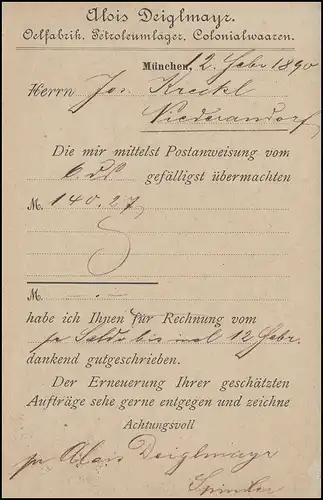 Alois Deiglmayr.
Oelfabrik, Petroleumlager, Colonialwaaren.
München, 12. Febr 1890
Herrn Jos. Kreikl
Niederaudorf
Die mir mittelst Postanweisung vom
6. ds gefälligst übermachten
M. 140.27
M. —.—
habe ich Ihnen für Rechnung vom
pr Saldo bis incl 12 Febr.
dankend gutgeschrieben.
Der Erneuerung Ihrer geschätzten
Aufträge sehe gerne entgegen und zeichne
Achtungsvoll
pr Alois Deiglmayr